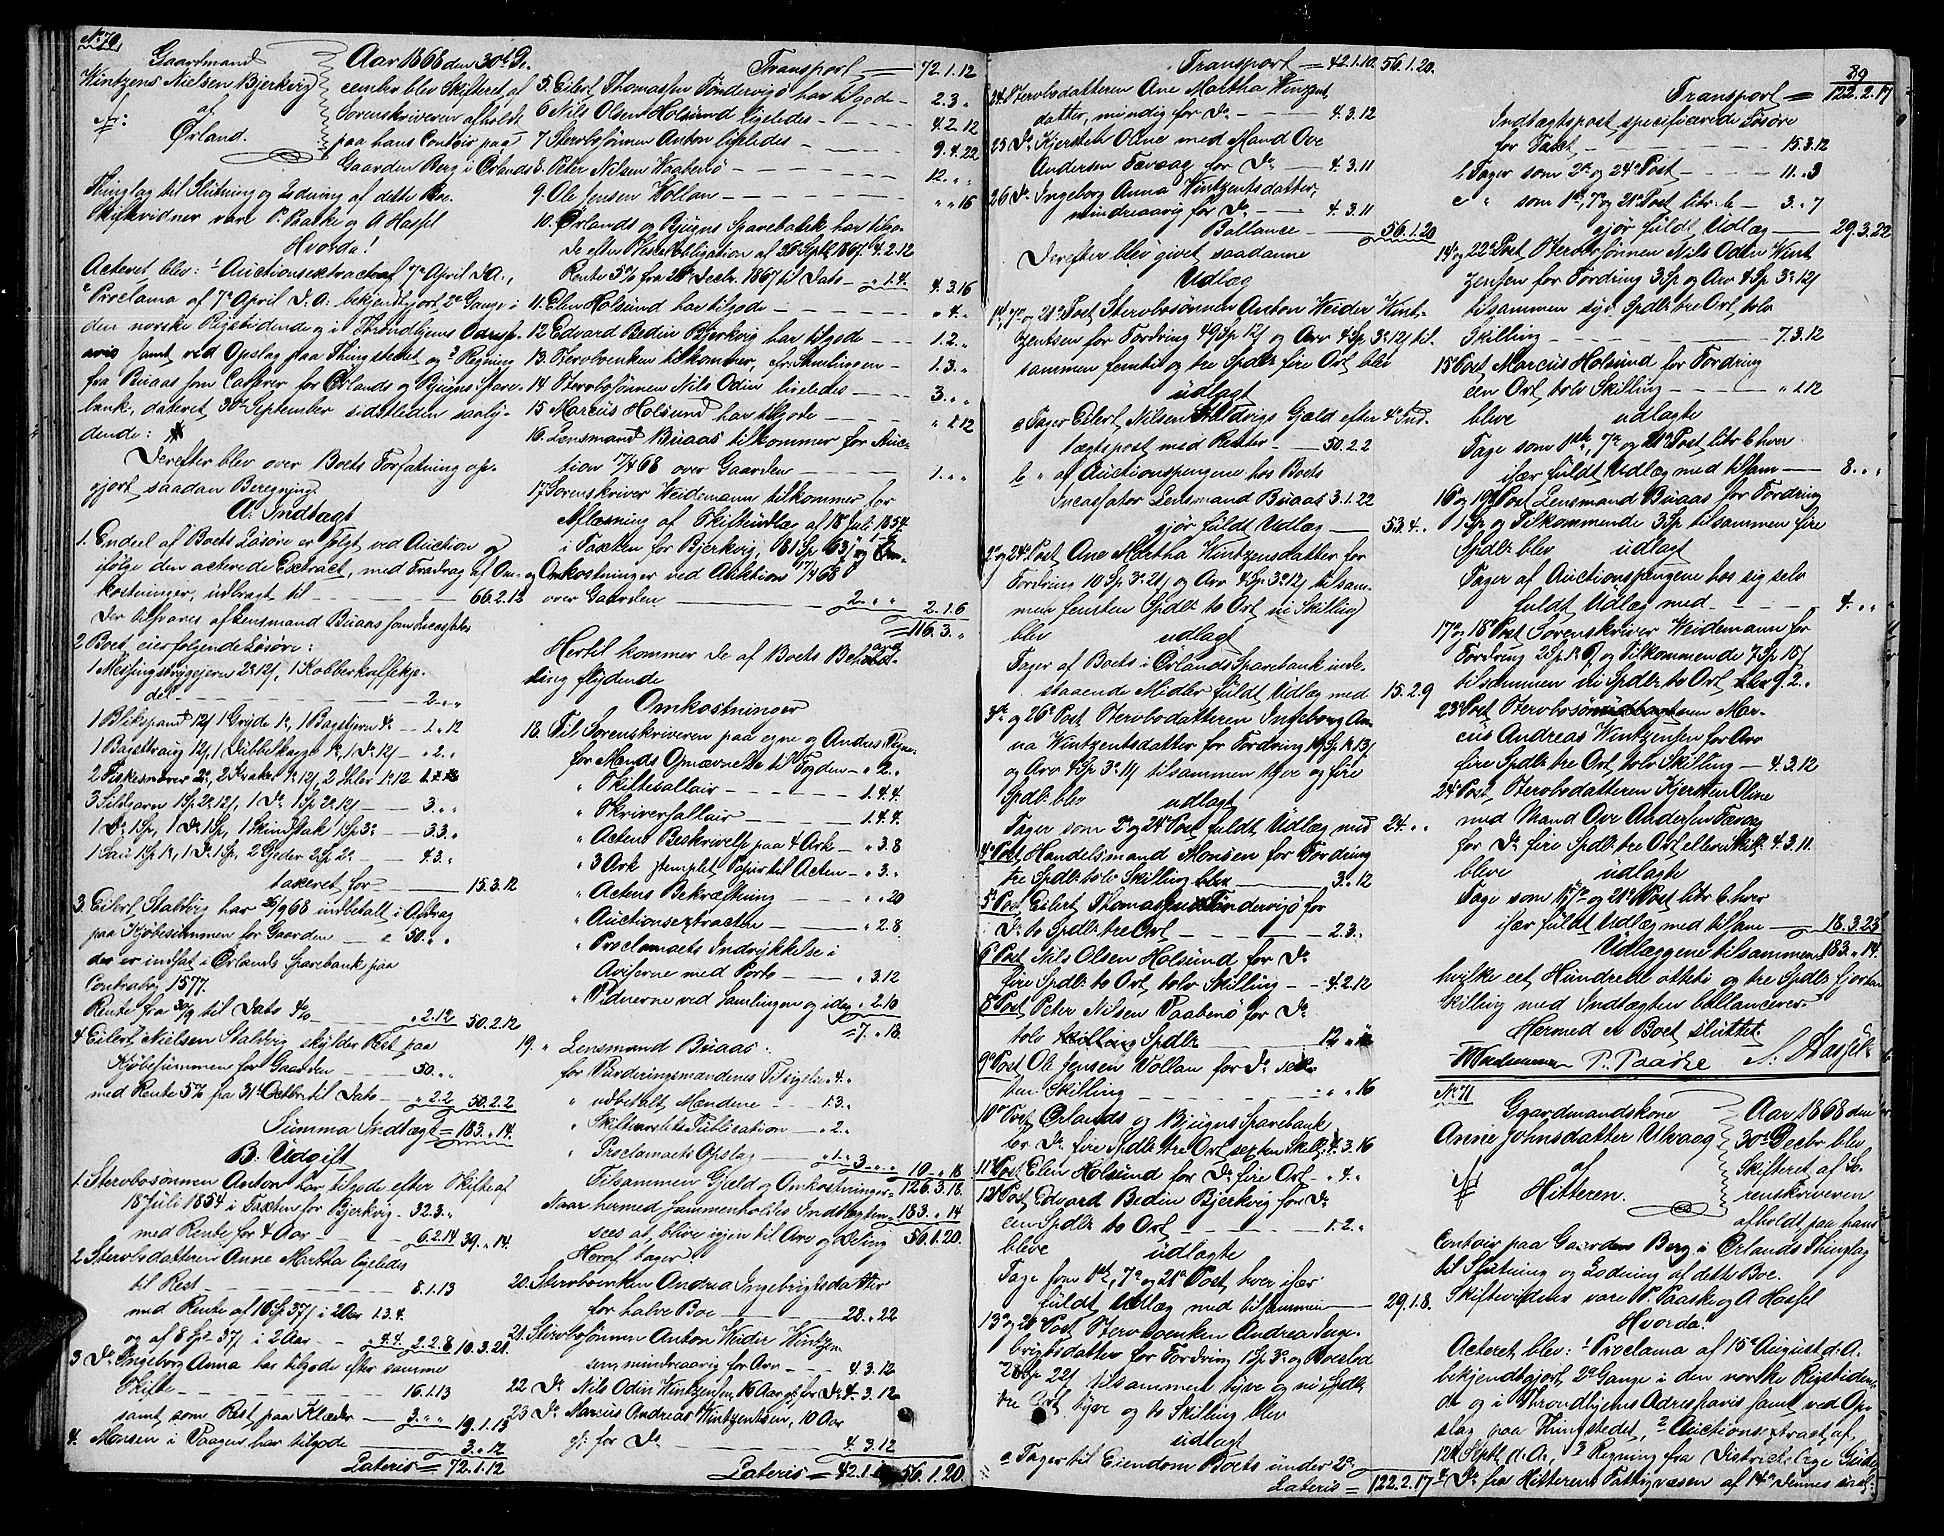 No 70.
Gaardmand
Wintzens Nielsen Bjerkvig
af
Ørland.
Aar 1868 den 30te De-
cember blev Skifteret af
Sorenskriveren afholdt
paa hans Contoir paa
Gaarden Berg i Ørlands
Thinglag til Slutning og Lodning af dette Boe.
Skiftevidner vare P. Paaske og A Hassel
Hvorda!
Acteret blev: 1 Auctionsextract af 7de April d. A.,
2 Proclama af 7de April d. A. bekjendtgjort 2de Gange i
den norske Rigstidende og i Throndhjems Adressef-
avis samt ved Opslag paa Thingstedet, og 3 Regning
fra Buaas som Casserer for Ørlands og Bjugns Spare-
bank, dateret 30te September sidstleden saaly-
dende:
Derefter blev over Boets Forfatning op-
gjort saadan Beregning.
A. Indtægt
1. Endeel af Boets Løsøre er solgt ved Auction og
ifølge den acterede Extract, med Fradrag af Om-
kostninger, udbragt til 66.2.12
der tilsvares af Lensmand Buaas som Incassator
2 Boet eier følgende Løsøre:
1 Messingstrygejern 2 12/, 1 Kobberkaffekje-
del 2 " "
1 Blikspand 12/ 1 Gryde 1, 1 Bagstjern 1. " 12
2 Fiskesnører 2, 2 Krakker 12/, 2 Stler 1. 12
3 Sildgarn 1 Sp 2. 12/, 1 Do 1 Sp 2. 12/ 3. " "
1 Do 1 Sp, 1 Do 1 Sp, 1 Skindfak 1 Sp 3. 3.3. "
1 Sau 1 Sp 1, 1 Do 1 Sp, 2 Gjeder 2 Sp 2. 4.3. "
taxeret for 15.3.12
3. Eilert Stalvig har 26/9 68 indbetalt i Afdrag
paa Kjøbesummen for Gaarden 50. " "
der er indsat i Ørlands Sparebank paa
Contrabog 1577.
Rente fra 30/9 til Dato 4% " 2.12 50.2.12
4 Eilert Nielsen Stalvig skylder Rest paa
Kjøbesummen for Gaarden 50. " "
med Rente 5% fra 31te Octbr. til Dato " 2.2 50.2.2
Summa Indtægt = 183. " 14.
B. Udgift
1. Stervbosønnen Anton har tilgode efter Skifte af
18 Juli 1854 i Taxten for Bjerkvig 32.3. "
med Rente for 4 Aar 6.2.14 39. " 14.
2 Stervbodatteren Anne Martha ligeledes
til Rest 8.1.13
med Rente af 16 Sp 37/ i 2 Aar 1.3.4.
og af 8 Sp 37/ i 2 Aar " 4.4. 2.2.8 10.3.21.
3 Do Ingeborg Anna har tilgode efter samme
Skifte 16.1.13
samt som Rest paa Klæder 3. " " 19.1.13
4. Monsen i Vaagen har tilgode 3. " 12
Lateris = 72.1.12
Transport = 72.1.12
5. Eilert Thomassen Tøndervigø har tilgode 2.3 "
6 Nils Olsen Holsund ligeledes 4.2.12
7 Stervbosønnen Anton ligeledes 9.4.22
8. Peter Nilsen Waabenø 12. " "
9. Ole Jensen Vollan " " 16
10. Ørlands og Bjugns Sparebank har tilgo-
de efter Vexelobligation af 28 Septbr 1867 4.2.12
Rente 5% fra 28de Decbr. 1867 til Dato " 1.4. 4.3.16
11. Elen Holsund har tilgode " 4. "
12 Edvard Bedin Bjerkvig har tilgode 1.2. "
13. Stervboenken tilkommer, før Samlingsen 1.3. "
14 Stervbosønnen Nils Odin ligeledes 3. " "
15 Marcus Holsund har tilgode " 1.12
16. Lensmand Buaas tilkommer for Auc-
tion 17/4 68 over Gaarden 1. " "
17. Sorenskriver Weidemann tilkommer for
Aflæsning af Skifteudlæg af 18 Juli 1854
i Taxten for Bjerkvig, 181 Sp 63/ " 1.6
og Omkostninger ved Auktion 17/4 68
over Gaarden 2. " " 2.1.6
= 116.3. "
Hertil kommer de af Boets Behand-
ling flydende
Omkostninger
18. Til Sorenskriveren paa egne og Andres Vegne
for Mænds Opnævnelse til Fogden " 2. "
" Skiftesallair 1.4.4.
" Skriversallair 1.4.4.
" Actens Beskrivelse paa 4 Ark " 3.8
" 3 Ark stemplet Papir til Acten " 3. "
" Actens Bekræftning " " 20
" Auctionsextracten " 2.8
" Proclamaets Indrykkelse i
Aviserne med Porto " 3.12
" Vidnerne ved Samlingen og idag " 2.10
= 7. " 18.
19. " Lensmand Buaas:
for Vurderingsmændenes Tilsigelse " 4. "
" udbetalt Mændene 1.3. "
" Skiftevarslets Publication " 2. "
" Proclamaets Opslag " 1. " 3. " " 10. " 18
Tilsammen Gjæld og Omkostninger = 126.3.18.
Naar hermed sammenholdes Indtægten = 183. " 14
sees at blive igjen til Arv og Deling 56.1.20.
Heraf tager:
20. Stervboenken Andrea Ingebrigtsdatter
for halve Boe 28. " 22
21. Stervbosønnen Anton Weider Wintzen-
sen, mindreaarig for Arv 4.3.12
22 Do Nils Odin Wintzensen, 16 Aar gl. for Do 4.3.12
23 Do Marcus Andreas Wintzentsen, 10 Aar
gl. for Do 4.3.12
Lateris = 42.1.10 56.1.20.
Transport = 42.1.10. 56.1.20.
24 Stervbodatteren Ane Martha Wintzents-
datter, myndig for Do 4.3.12
25 Do Kjersten Oline med Mand Ove
Andersen Tarvaag for Do 4.3.11
26 Do Ingeborg Anna Wintzentsdatter,
mindreaarig for Do 4.3.11
Ballance 56.1.20
Derefter blev givet saadanne
Udlæg
1ste, 7de og 21de Post Stervbosønnen Anton Weider Wint-
zentsen for Fordring 49 Sp 12/ og Arv 4 Sp 3. 12/ til-
sammen femti og tre Spdlr fire Ort blev
udlagt
a Tager Eilert Nilsen Stalvigs Gjæld efter 4de Ind-
tægtspost med Renter 50.2.2
b " af Auctionspengene hos Boets
Incassator Lensmand Buaas 3.1.22
gjør fuldt Udlæg 53.4. "
2de og 24de Post Ane Martha Wintzensdatter for
Fordring 10 Sp 3. 21/ og Arv 4 Sp 3. 12/ tilsam-
men femten Spdlr to Ort ni Skilling
blev udlagt
Tager af Boets i Ørlands Sparebank inde-
staaende Midler fuldt Udlæg med 15.2.9
3die og 26de Post Stervbodatteren Ingeborg An-
na Wintzentsdatter for Fordring 19 Sp 1. 13/
og Arv 4 Sp 3. 11/ tilsammen tyve og fire
Spdlr blev udlagt
Tager som 2de og 24de Post fuldt Udlæg med 24. " "
4de Post Handelsmand Monsen for Fordring
tre Spdlr tolv Skilling blev 3. " 12
5te Post Eilert Thomassen Tøndervigø for
Do to Spdlr tre Ort 2.3. "
6te Post Nils Olsen Holsund for Do
fire Spdlr to Ort tolv Skilling 4.2.12
8de Post Peter Nilsen Vaabenø for Do
tolv Spdlr 12 " "
9de Post Ole Jensen Vollan for Do sex-
ten Skilling " " 16
10de Post Ørlands og Bjugns Sparebank
for Do fire Spdlr tre Ort sexten Skill. 4.3.16
11te Post Elen Holsund for Do fire Ort " 4. "
12te Post Edvard Bedin Bjerkvig for Do
een Spdlr to Ort 1.2. "
bleve udlagte
Tage som 1ste, 7de og 21de Post, hver især
fuldt Udlæg med tilsammen 29.1.8.
13de og 20de Post Stervboenken Andrea Inge-
brigtsdatter for Fordring 1 Sp 3. og Boeslod
28 Sp 22/ tilsammen tyve og ni Spdlr
tre Ort tyve og to Skilling blev
udlagt
a Tager til Eiendom Boets under 2de
Lateris = 122.2.17
89
Transport = 122.2.17
Indtægtspost specificerede Løsøre
for Taxt 15.3.12
b Tager som 2de og 24de Post 11. " 3
c " som 1ste, 7de og 21de Post litr. b 3. " 7
gjør fuldt Udlæg 29.3.22
14de og 22de Post Stervbosønnen Nils Odin Wint-
zensen for Fordring 3 Sp og Arv 4 Sp 3. 12/
tilsammen syv Spdlr tre Ort tolv
Skilling 7.3.12
15de Post Marcus Holsund for Fordring
een Ort tolv Skilling " 1.12
bleve udlagte
Tage som 1ste, 7de og 21de Post litr b hver
især fuldt Udlæg med tilsam 8. " "
16de og 19de Post Lensmand Buaas for Fordring
1 Sp og Tilkommende 3 Sp tilsammen fire
Spdlr blev udlagt
Tager af Auctionspengene hos sig selv
fuldt Udlæg med 4. " "
17de og 18de Post Sorenskriver Weidemann for
Fordring 2 Sp 1. 6/ og Tilkommende 7 Sp 18/
tilsammen ni Spdlr to Ort 9.2. "
23de Post Stervbosønnen Mar-
cus Andreas Wintzensen for Arv
fire Spdlr tre Ort tolv Skilling 4.3.12
24de Post Stervbodatteren Kjersten Oline
med Mand Ove Andersen Tarvaag
for Do fire Spdlr tre Ort elleve Skill. 4.3.11.
bleve udlagte
Tage som 1ste, 7de og 21de Post litr b hver
især fuldt Udlæg med tilsam 18.3.23
Udlæggene tilsammen 183. " 14.
hvilke eet Hundrede otteti og tre Spdlr fjorten
Skilling med Indtægten ballancerer
Hermed er Boet sluttet.
Weidemann P. Paaske A. Hassel
No 71
Gaardmandskone
Anne Johnsdatter Ulvaag
af
Hitteren.
Aar 1868 den
30te Decbr blev
Skifteret af So-
renskriveren
afholdt paa hans
Contoir paa Gaarden Berg i Ørlands Thinglag
til Slutning og Lodning af dette Boe.
Skiftevidner vare P. Paaske og A Hassel
Hvorda:
Acteret blev: 1 Proclama af 15de August d. A.
bekjendtgjort 2de Gange i den norske Rigstiden-
de og i Throndhjems Adresseavis samt ved Op-
slag paa Thingstedet, 2 Auctionsextract af
12te Septbr. d. A., 3 Regning fra Districtslæge
Do fra Hitterens Fattigvæsen af 14de dennes saaly-